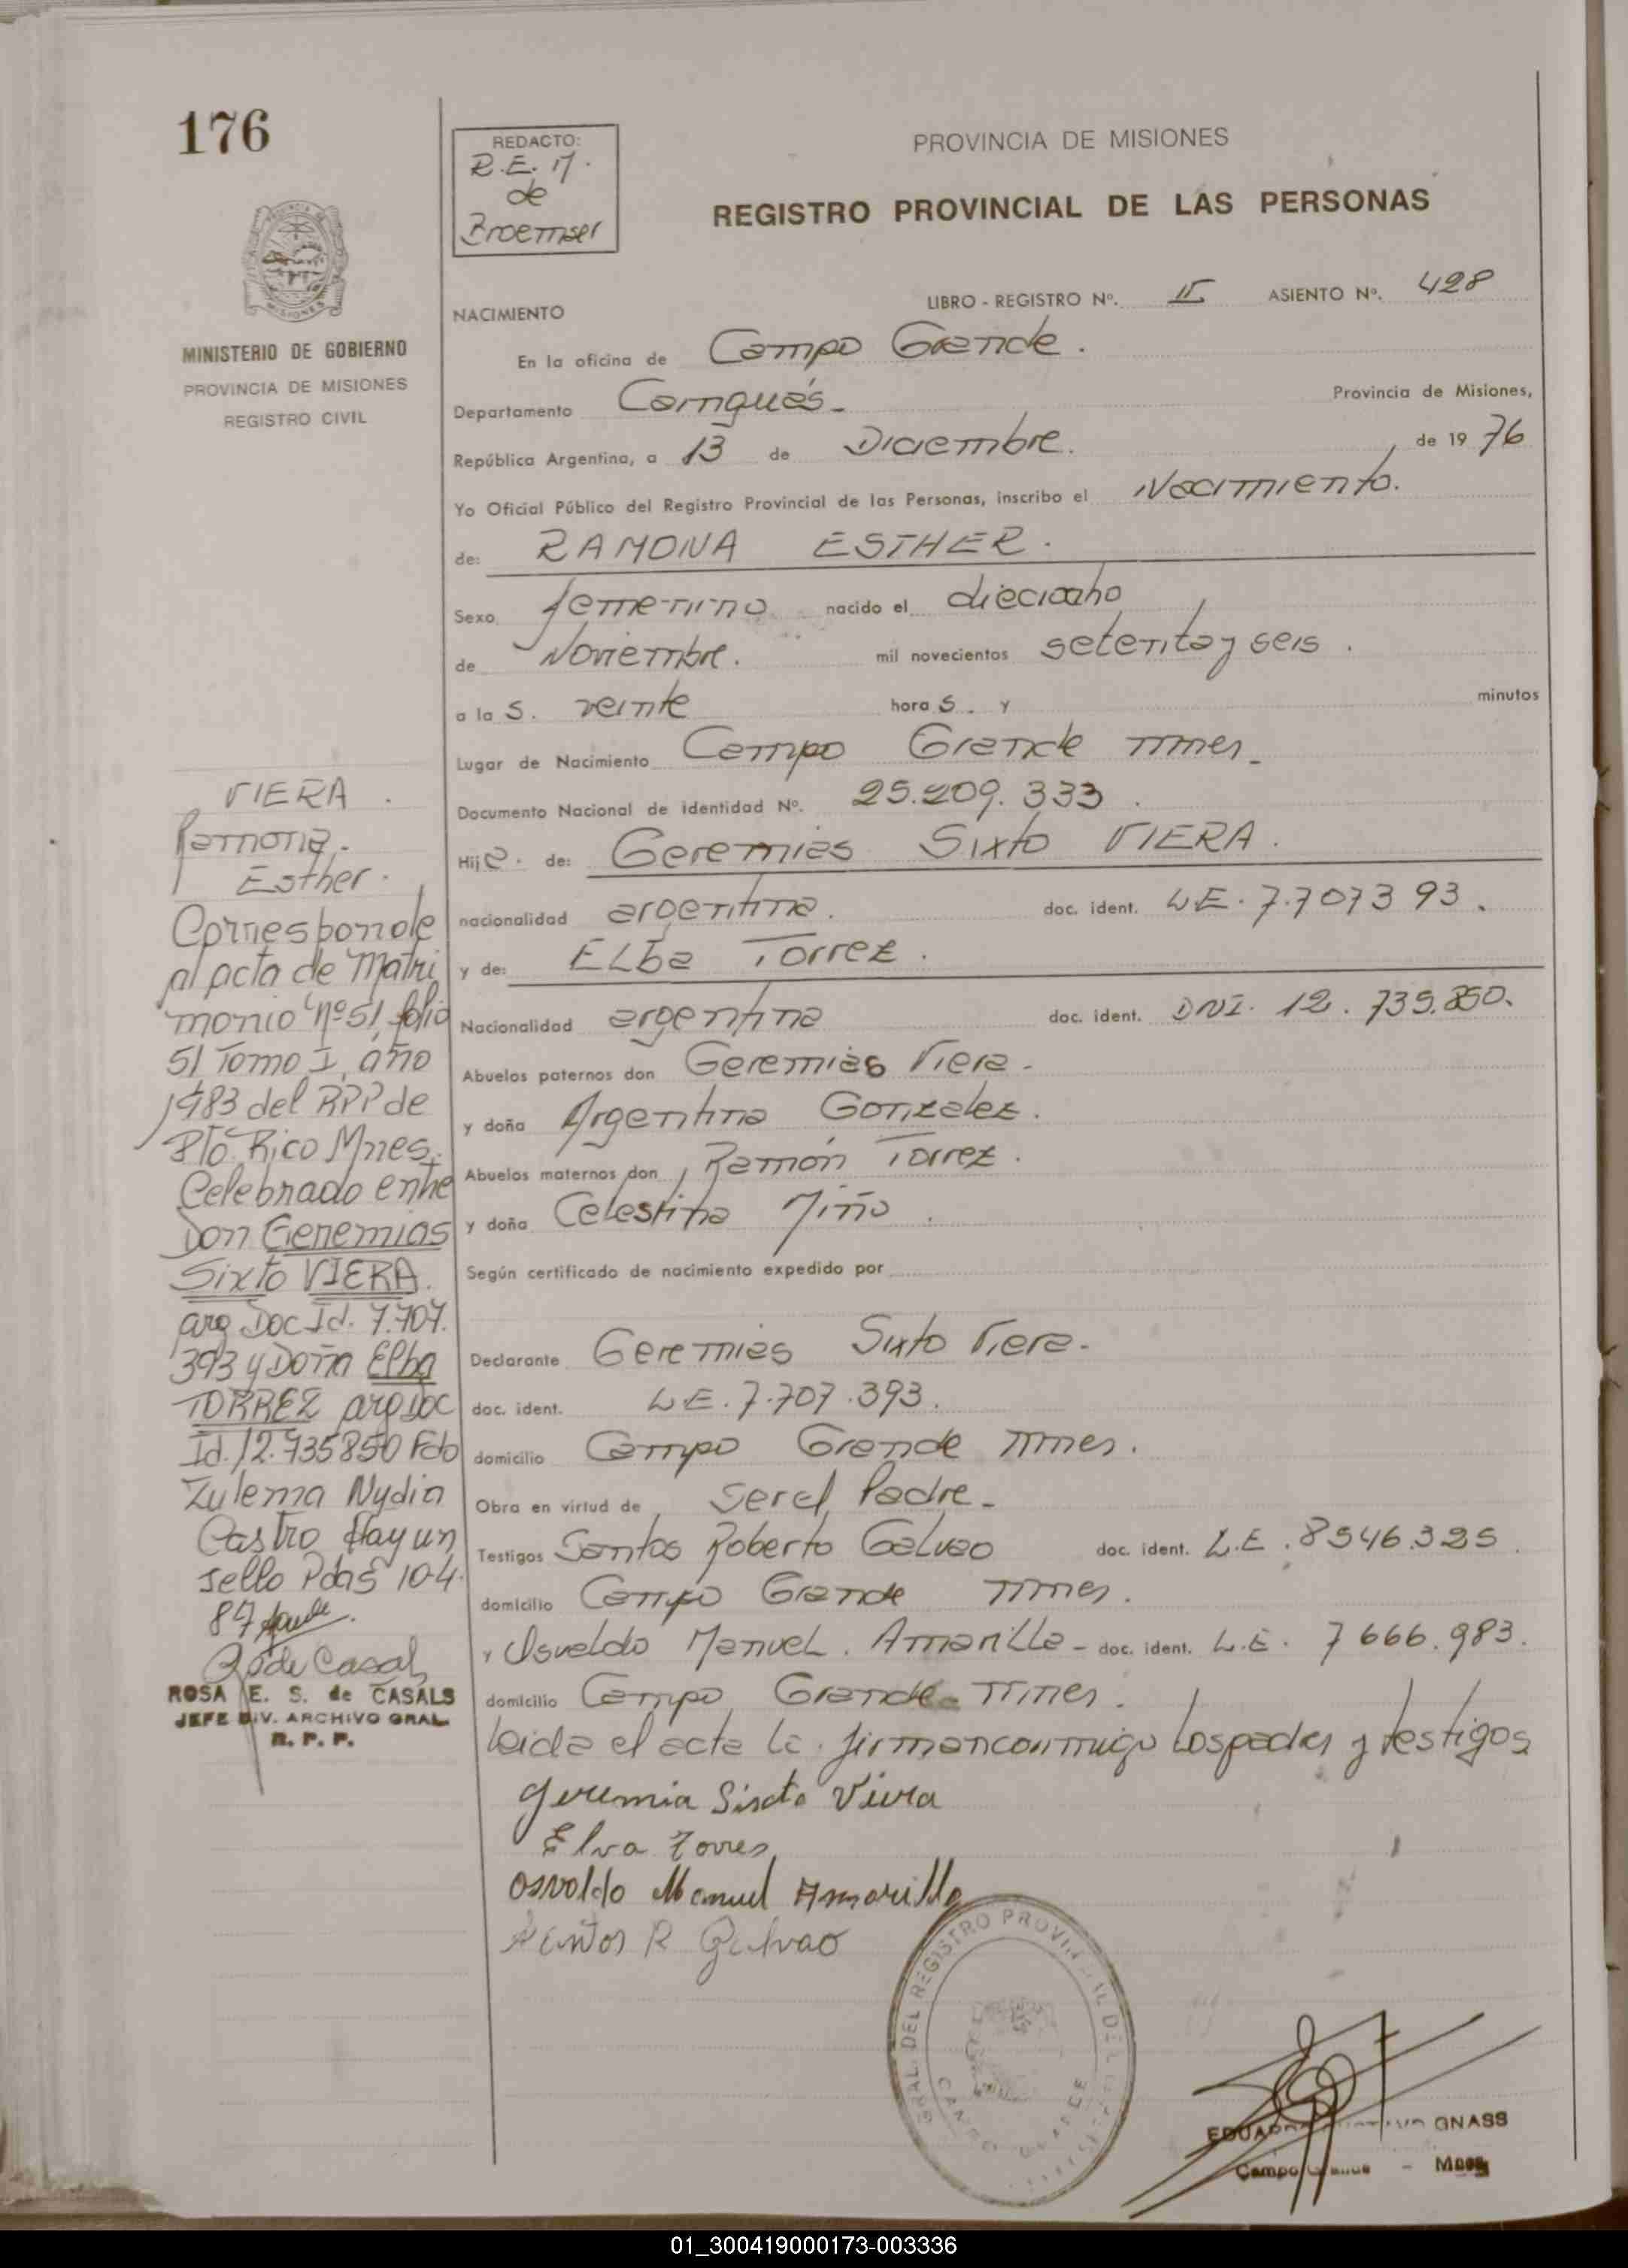 176
REDACTO:
R.E.M.
de
Broemser
PROVINCIA DE MISIONES
REGISTRO PROVINCIAL DE LAS PERSONAS
MINISTERIO DE GOBIERNO
PROVINCIA DE MISIONES
REGISTRO CIVIL
NACIMIENTO
LIBRO - REGISTRO Nº. II ASIENTO Nº. 428
En la oficina de Campo Grande.
Departamento Cainguás. Provincia de Misiones,
República Argentina, a 13 de Diciembre. de 1976
Yo Oficial Público del Registro Provincial de las Personas, inscribo el Nacimiento.
de: RAMONA ESTHER.
Sexo femenino nacido el dieciocho
de Noviembre. mil novecientos setenta y seis.
a la s. veinte hora s. y minutos
Lugar de Nacimiento Campo Grande Mnes.
Documento Nacional de identidad Nº. 25.209.333.
Hij a. de: Geremias Sixto VIERA.
nacionalidad argentina. doc. ident. L.E. 7.707393.
y de: ELba Torrez.
Nacionalidad argentina doc. ident. DNI. 12.735.850.
Abuelos paternos don Geremias Viera.
y doña Argentina Gonzalez.
Abuelos maternos don Ramón Torrez.
y doña Celestina Miño.
Según certificado de nacimiento expedido por
Declarante Geremias Sixto Viera.
doc. ident. L.E. 7.707.393.
domicilio Campo Grande Mnes.
Obra en virtud de ser el Padre.
Testigos Santos Roberto Galvao doc. ident. L.E. 8546.325.
domicilio Campo Grande Mnes.
y Osvaldo Manuel. Amarilla - doc. ident. L.E. 7666.983.
domicilio Campo Grande Mnes.
Leida el acta la firman conmigo los padres y testigos
Jeremia Sisto Viera
Elva Torres
Osvaldo Manuel Amarilla
Santos R Galvao
VIERA.
Ramona.
Esther.
Corresponde
al acta de Matri
monio nº 51, folio
51 Tomo I, año
1983 del RPP de
Pto. Rico Mnes.
Celebrado entre
Don Geremias
Sixto VIERA.
arg Doc Id. 7.707.
393 y Doña Elba
TORREZ arg Doc
Id. 12.735850 Fdo
Zulema Nydia
Castro Hayun
sello Pdas 10-4-
87
R de Casals
ROSA E. S. de CASALS
JEFE DIV. ARCHIVO GRAL.
R. P. P.
GRAL. DEL REGISTRO PROVINCIAL DE
CAMPO GRANDE
EDUARDO GNASS
Campo Grande - Mnes
01_300419000173-003336